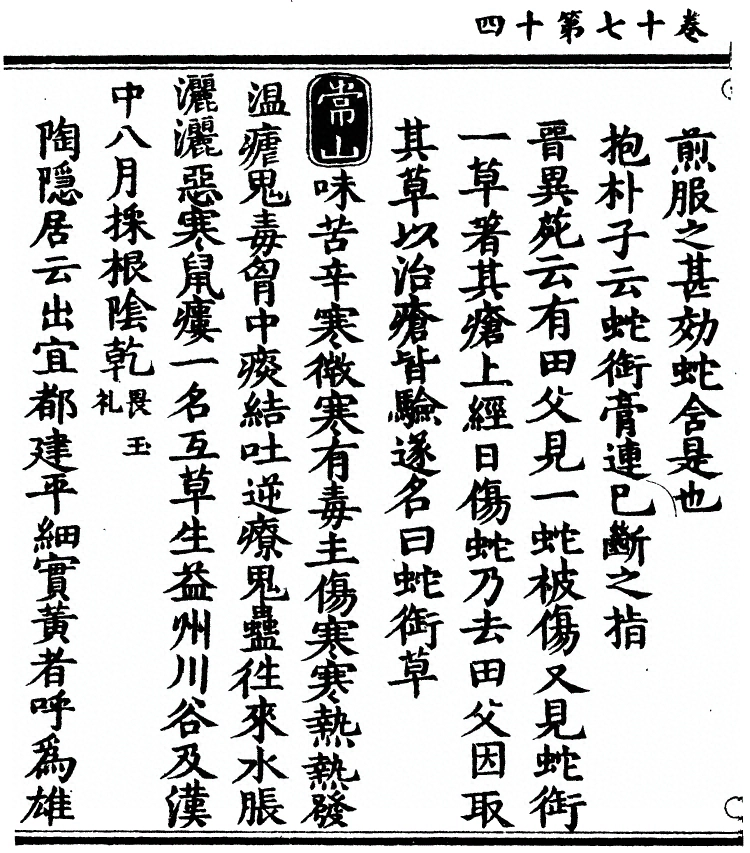 卷十七第十四
煎服之甚効蛇含是也
抱朴子云蛇銜膏連已斷之指
晉異苑云有田父見一蛇被傷又見蛇銜
一草著其瘡上經日傷蛇乃去田父因取
其草以治瘡皆驗遂名曰蛇銜草
常山味苦辛寒微寒有毒主傷寒寒熱熱發
温瘧鬼毒胷中痰結吐逆療鬼蠱往來水脹
灑灑惡寒鼠瘻一名互草生益州川谷及漢
中八月採根陰乾畏玉礼
陶隱居云出宜都建平細實黃者呼爲雄